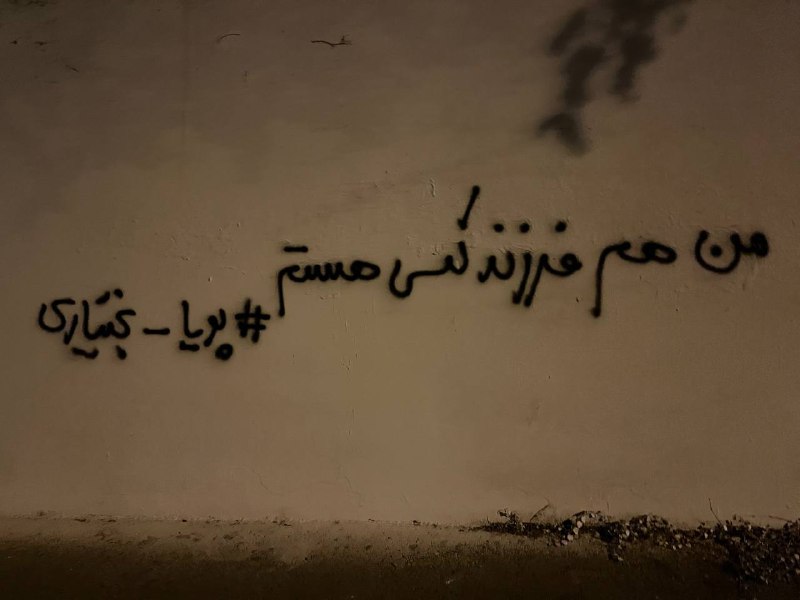 من هم فرزند کسی هستم
#پویا_بختیاری